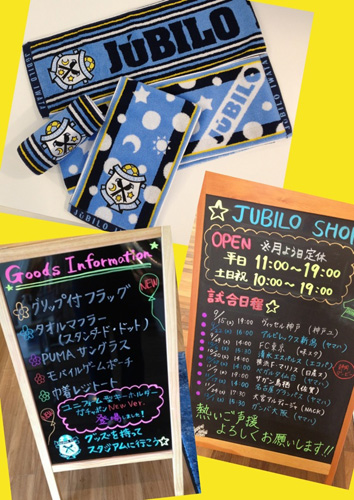 JÚBILO
JÚBILO
JÚBILO
Goods Information
NEW
グリップ付フラッグ
タオルマフラー
(スタンダード・ドット)
PUMA サングラス
モバイルゲームポーチ
巾着レジャシート
ユニフォーム型キーホルダー
ガチャポン New Ver.
登場しました!
グッズを持って
スタジアムに行こう☆
JUBILO SHOP
OPEN 毎月よう日定休
平日 11:00〜19:00
土日祝 10:00〜19:00
試合日程
19:00 ヴィッセル神戸 (神戸ユ)
アルビレックス新潟 (ヤマハ)
FC東京 (味スタ)
清水エスパルス (エコパ)
横浜F・マリノス (日産ス)
ベガルタ仙台 (ヤマハ)
サガン鳥栖 (佐賀)
名古屋グランパス (ヤマハ)
大宮アルディージャ (NACK)
ガンバ大阪 (ヤマハ)
熱いご声援
よろしくお願いします!!